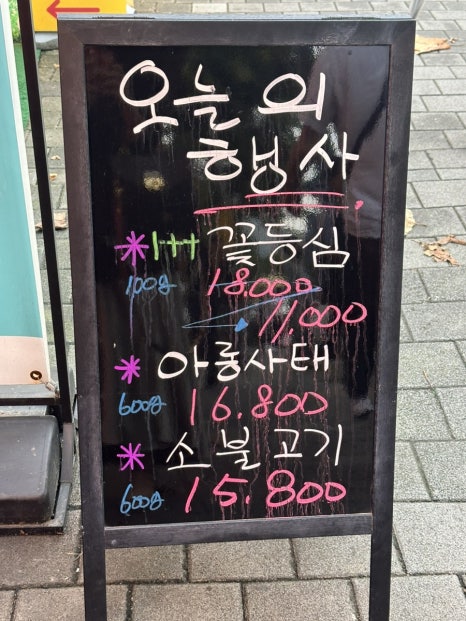 오늘의
행사
*1++ 꽃등심
100g 18.000
11,000
* 아롱사태
600g 16.800
* 소불고기
600g 15.800